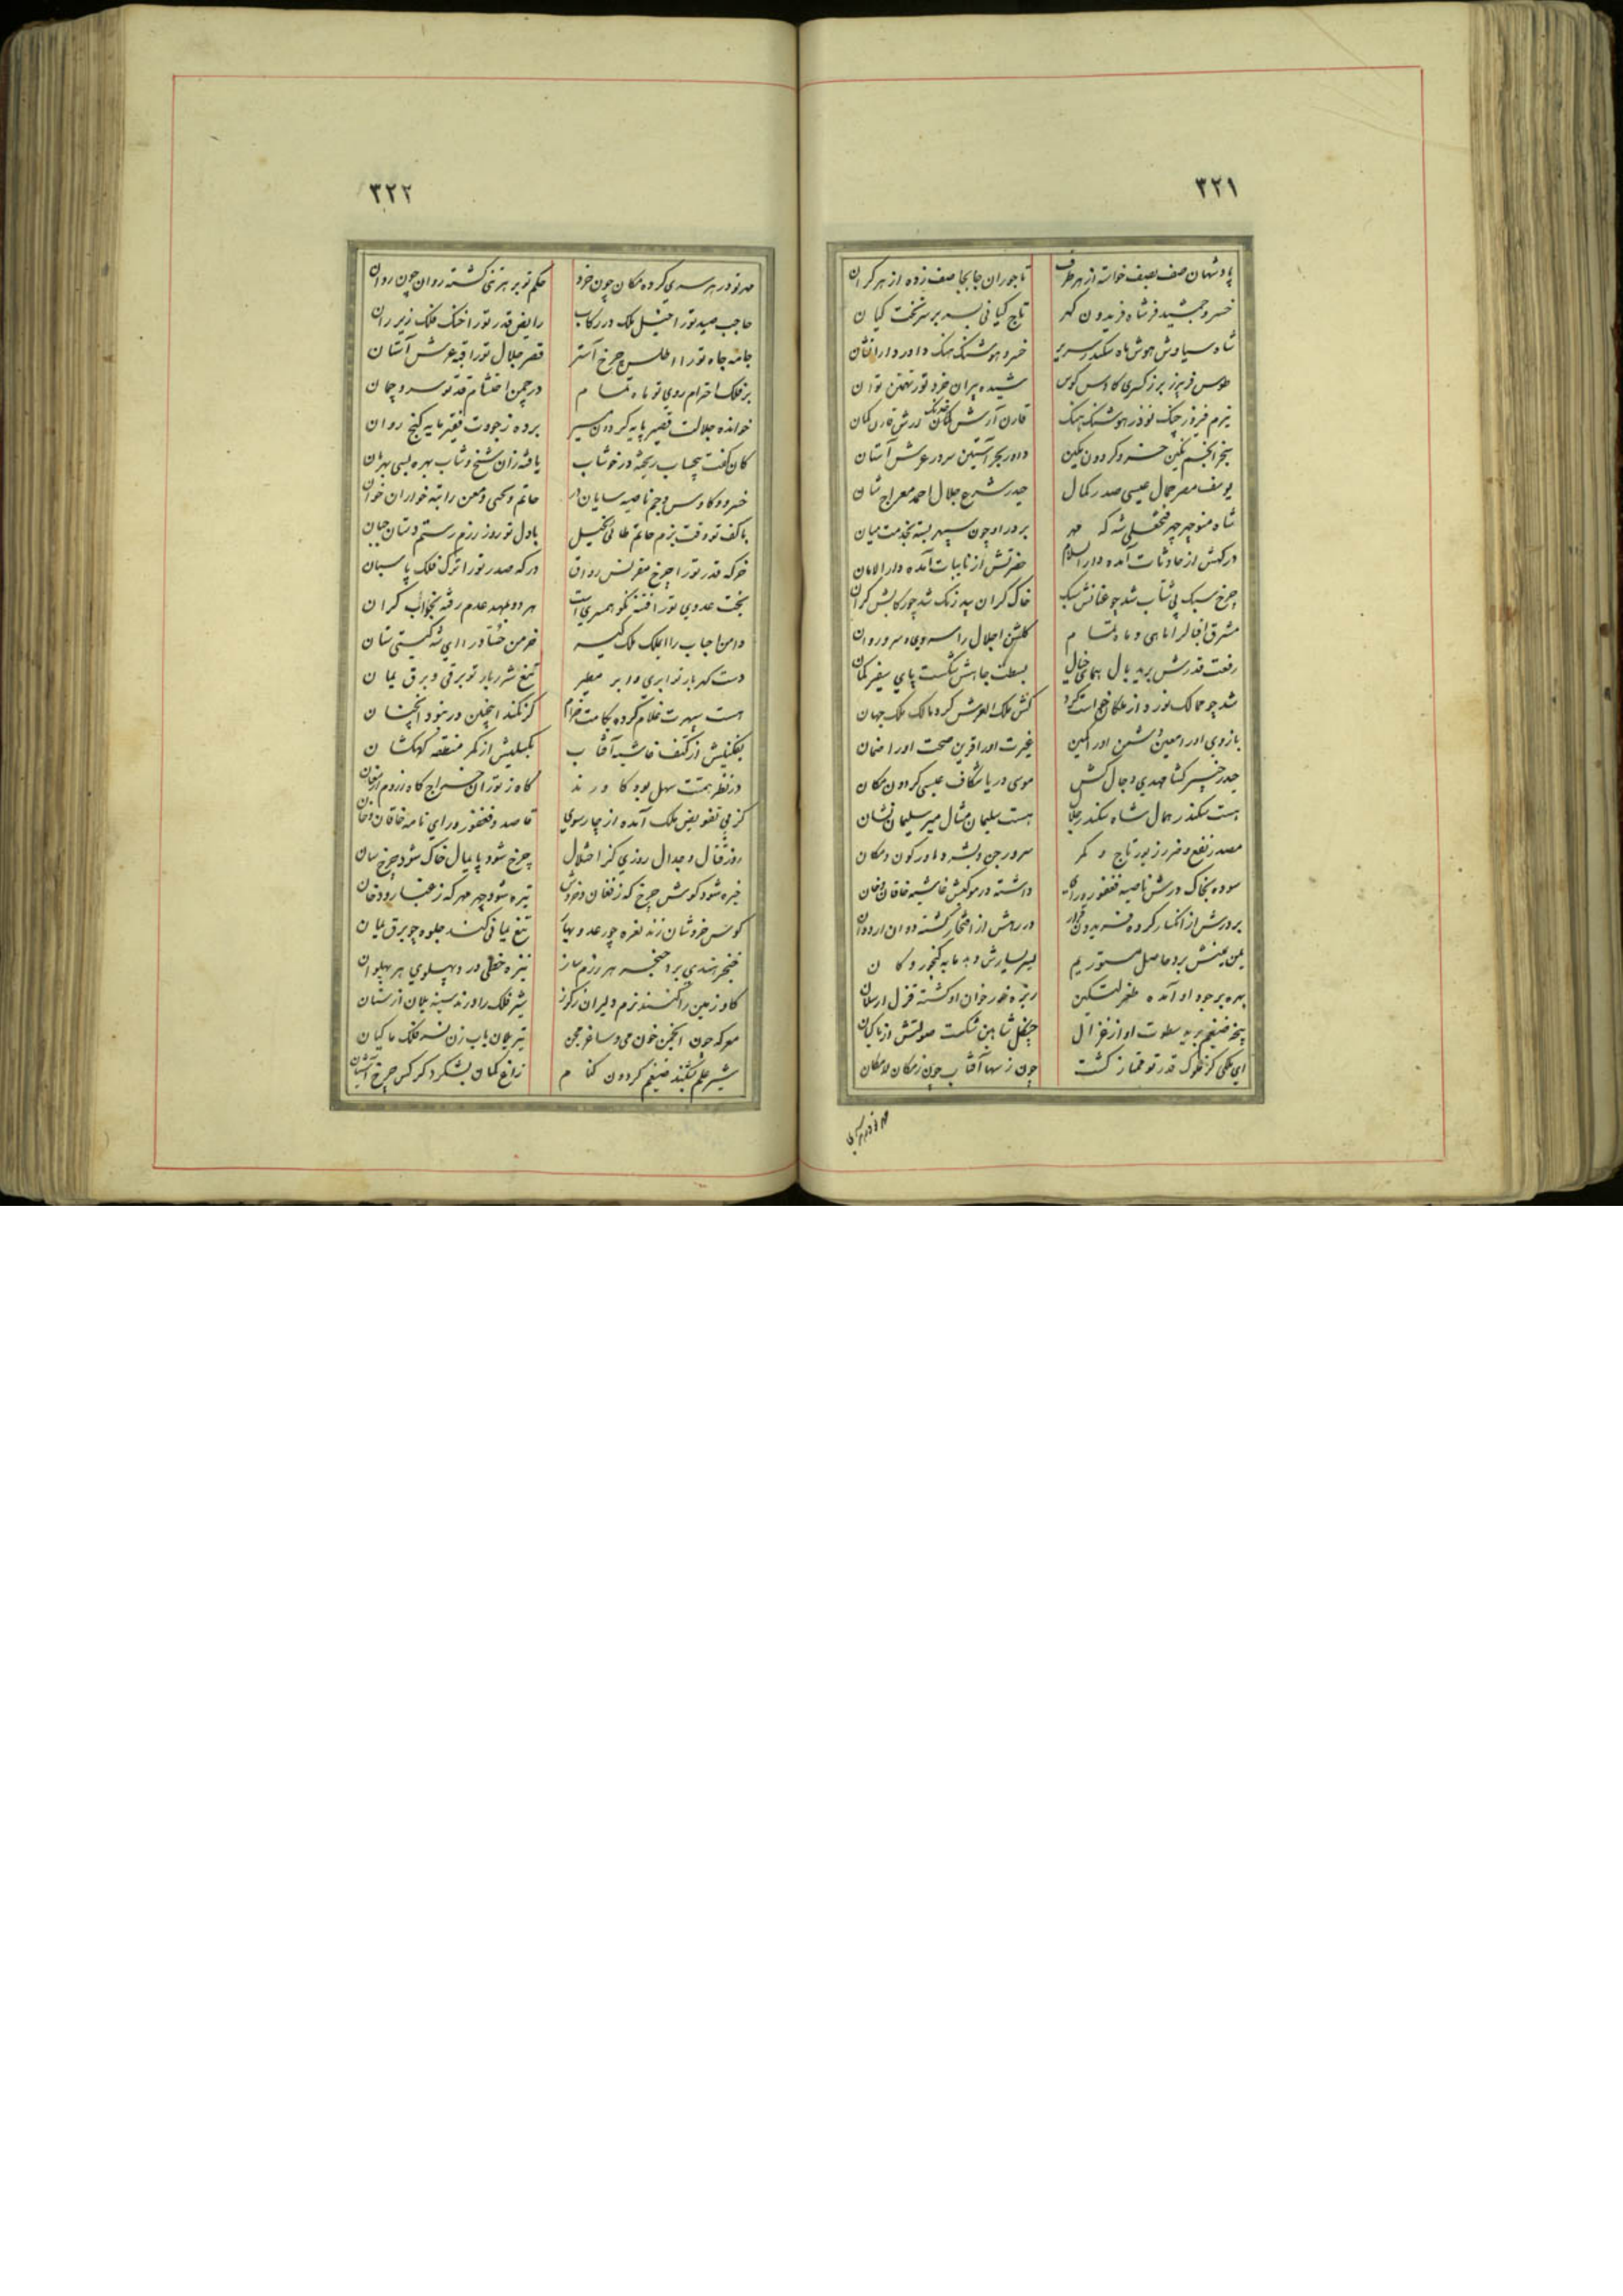 ۳۲۱
پادشهان صف بصف خواسته از هر طرف تاجوران جابجا صف زده از هر کران
خسرو جمشید فر شاه فریدون کهر تاج کیانی بسر بر سر تخت کیان
شاه سیاوش هوش ماه سکندر سریر خسرو هوشنگ هنک داور دارانشان
طوس فریبرز برز کسری کاوس کوس شیده پیران خرد تور تهمتن توان
نیرم فیروز جنگ نوذر هوشنک هنک قارن آرش کمان
سنجر انجم نکین خسرو کردون مکین داور بحر آستین سرور عرش آستان
یوسف مصر جمال عیسی صدر کمال حیدر شرع جلال احمد معراج شان
شاه منوچهر چهر فتحعلی شه که مهر بر در او چون سپهر بسته بخدمت میان
درکهش از حادثات آمده دار السلام حضرتش از نایبات آمده دار الامان
چرخ سبک پی شتاب شد چو عنانش سبک خاک کران بی درنک شد چو رکابش کران
مشرق اقبال را ماهی و ماه تمام کلشن اجلال را سروی و سرو روان
رفعت قدرش برید بال همای خیال بسطت جاهش شکست پای سفیر کمان
شد چو ممالک نورد از ملکان خواست کرد کش ملک العرش کرد مالک ملک جهان
بازوی او را معین دشمن او را کمین غیرت او را قرین صحت او را ضمان
حیدر خیبر کشا مهدی دجال کش موسی دریا شکاف عیسی کردون مکان
هست سکندر همال شاه سکندر جلال هست سلیمان مثال میر سلیمان نشان
مصدر نفع و ضرر زیور تاج و کمر سرور جن و بشر داور کون و مکان
سوده بخاک درش ناصیه فغفور و رای داشته در موکبش غاشیه خاقان و خان
بر درش از انکسار کرده فریدون قرار در رهش از افتخار کشته دوان اردوان
یمن یمینش برد حاصل مستور یم یسر یسارش دهد مایه کنجور و کان
بهره بر جود او آمده طغرل تکین ریزه خور خوان او کشته قزل ارسلان
پنجه ضیغم برید سطوت او از غزال چنکل شاهین شکست صولتش از ماکیان
ای ملکی کز ملوک قدر تو ممتاز کشت چون ز سها آفتاب چون ز مکان لامکان
۳۲۲
مهر تو در هر سری کرده مکان چون خرد حکم تو بر هر تنی کشته روان چون روان
حاجب صید تو را خیل ملک در رکاب رایض قدر تو را خنک فلک زیر ران
جامه جاه تو را اطلس چرخ آستر قصر جلال تو را قبه عرش آستان
بر فلک احترام روی تو ماه تمام در چمن احتشام قد تو سرو چمان
خوانده جلالت قصیر پایه کردون مسیر برده ز جودت فقیر مایه کنج روان
کان کفت بیحساب ریخته در خوشاب یافته زان شیخ و شاب بهره بسی بهرمان
خسرو و کاوس و جم ناصیه سایان در حاتم و یحیی و معن راتبه خواران خوان
با کف تو وقت بزم حاتم طائی بخیل با دل تو روز رزم رستم دستان جبان
خرکه قدر تو را چرخ مقرنس رواق درکه صدر تو را ترک فلک پاسبان
بخت عدوی تو را فتنه نکو همسریست هر دو بمهد عدم رفته بخواب کران
دامن احباب را ای ملک ملک کیر خرمن حساد را ای شه کیتی ستان
دست کهربار تو ابری و ابر مطیر تیغ شرربار تو برقی و برق یمان
هست سپهرت غلام کرده بکامت خرام کر نکند اینچنین ور نبود آنچنان
بفکنیش از کتف غاشیه آفتاب بکسلیش از کمر منطقه کهکشان
در نظر همتت سهل بود کاورند کاه ز توران خراج کاه ز روم ارمغان
کز پی تفویض ملک آمده از چارسوی قاصد فغفور و رای نامه خاقان و خان
روز قتال و جدال روزی کز اختلال چرخ شود پایمال خاک شود چرخ سان
خیره شود کوش چرخ که ز فغان و خروش تیره شود چهر مهر که ز غبار و دخان
کوس خروشان زند نعره چو رعد و بهار تیغ یمانی کند جلوه چو برق یمان
خنجر هندی برد حنجر هر رزم ساز نیزه خطی درد پهلوی هر پهلوان
کاو زمین را کنند نرم دلیران ز کرز شیر فلک را درند سینه یلان از سنان
معرکه چون انجمن خون می و ساغر مجن تیر یلان باب زن نسر فلک ماکیان
شیر علم بشکند ضیغم کردون کنام زاغ کمان بشکرد کرکس چرخ آشیان